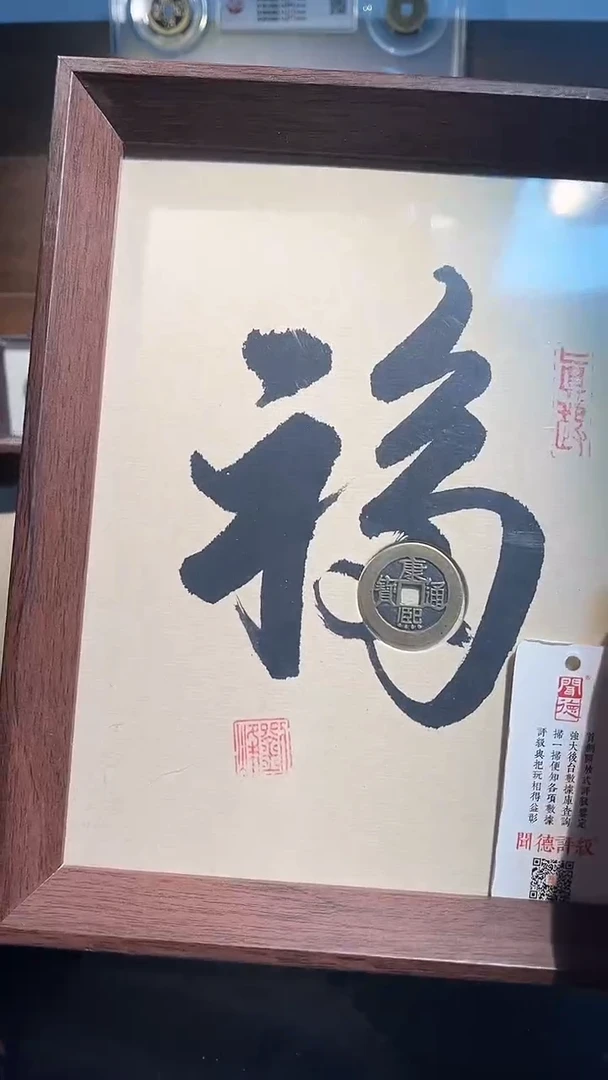 福
康熙通寳
聞德
強大後台數據庫查詢
掃一掃便知各項數據
評級與把玩相得益彰
聞德評級